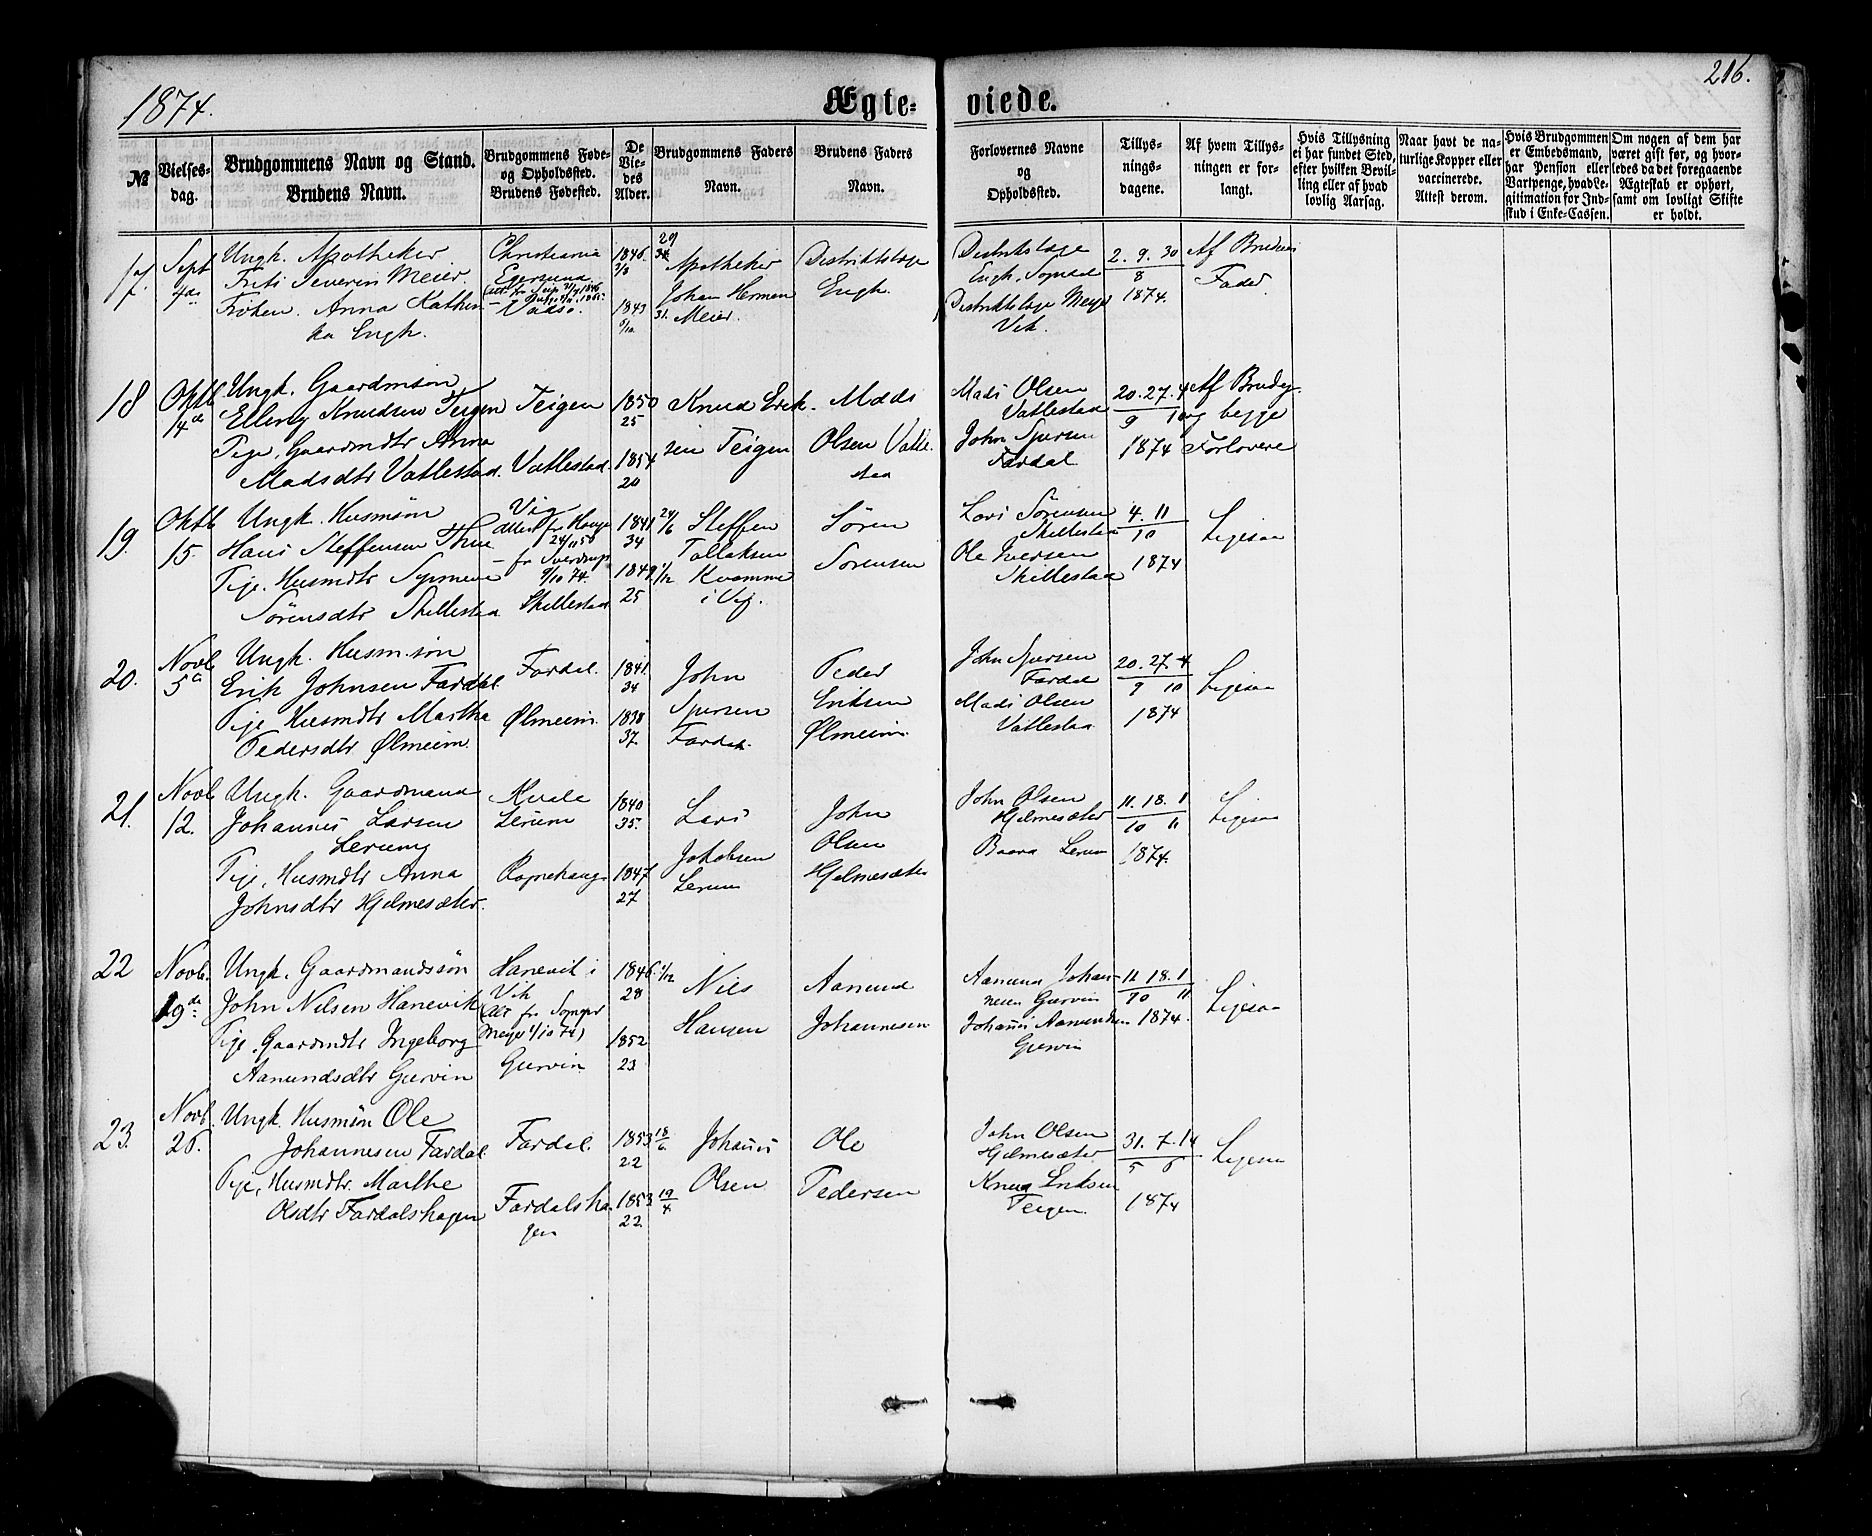 1874.
Ægte-
viede.
216.
№
Vielses-
dag.
Brudgommens Navn og Stand.
Brudens Navn.
Brudgommens Føde-
og Opholdssted.
Brudens Fødested.
De
Vie-
des
Alder.
Brudgommens Faders
Navn.
Brudens Faders
Navn.
Forlovernes Navne
og
Opholdssted.
Tillys-
nings-
dagene.
Af hvem Tillys-
ningen er for-
langt.
Hvis Tillysning
ei har fundet Sted,
efter hvilken Bevil-
ling eller af hvad
lovlig Aarsag.
Naar havt de na-
turlige Kopper eller
vaccinerede.
Attest derom.
Hvis Brudgommen
er Embedsmand,
har Pension eller
Vartpenge, hvad Le-
gitimation for Ind-
skud i Enke-Cassen.
Om nogen af dem har
været gift før, og hvor-
ledes da det foregaaende
Ægteskab er ophørt,
samt om lovligt Skifte
er holdt.
17.
Sept
Ungk. Apotheker
Frits Severin Meier.
Frøken. Anna Kathin
ka Engh.
Christiania
Egersund
Vadsø.
1846
1843
29
Apotheker
Johan Herman
31. Meier.
Distriktslæge
Engh.
Distriktslæge
Engh, Sogndal
Distriktslæge Meyer
Vik.
2. 9. 30
8
1874.
Af Brudens
Fader.
18
Oktb
14de
Ungk. Gaardmsøn
Elling Knudsen Teigen
Pige, Gaardmdtr Anna
Madsdtr Vatlestad.
Teigen
Vatlestad.
1850
25
1854
20
Knud Erik-
sen Teigen
Mads
Olsen Vatle-
staa
Mads Olsen
Vatlestaa
John Sjursen
Fardal
20. 27. 4
9 10
1874
Af Brudeg.
og begge
Forlovere
19.
Oktb
15.
Ungk. Husmsøn
Hans Steffensen Thue
Pige. Husmdtr Synneve
Sørensdtr Skillestad
Vig
24/11 58
9/10 74.
Skillestad
1841
34
1849
25
24/6 Steffen
Tollaksen
1/12 Kvamme
i Vig.
Søren
Sørensen
Lars Sørensen
Skillestaa
Ole Iversen
Skillestaa
4. 11
10
1874
Ligesaa
20.
Novb
5te
Ungk. Husm.søn
Erik Johnsen Fardal.
Pige Husmdtr Martha
Pedersdtr Ølmeim.
Fardal.
Ølmeim.
1841.
34
1838
37.
John
Sjursen
Fardal.
Peder
Eriksen
Ølmeim.
John Sjursen
Fardal
Mads Olsen
Vatlestaa
20. 27. 4
9 10
1874
Ligesaa
21.
Novb
12.
Ungk. Gaardmand
Johannes Larsen
Lerum
Pige, Husmdtr Anna
Johnsdtr Hjelmesæter.
Kvale
Lerum
Rognehaug
1840
35.
1847.
27
Lars
Jakobsen
Lerum
John
Olsen
Hjelmesæter
John Olsen
Hjelmesæter
Baara Lerum
11. 18. 1
10 11
1874.
Ligesaa
22
Novb.
19de
Ungk. Gaardmandssøn
John Nilsen Hanevik
Pige. Gaardmdtr Ingeborg
Aamundsdtr Gurvin
Hanevik i
Vik
Gurvin
1846.
28
1852
23
1/12
Nils
Hansen
Aamund
Johannesen
Aamund Johan-
nesen Gurvin
Johannes Aamundsen
Gurvin
11. 18. 1
10 11
1874.
Ligesaa
23.
Novb.
26.
Ungk. Husmsøn Ole
Johannesen Fardal
Pige, Husmdtr. Marthe
Olsdtr Fardalshagen
Fardal.
Fardalsha
gen
1853 18/6
22
1853 19/4
22.
Johannes
Olsen
Ole
Pedersen
John Olsen
Hjelmesæter
Knud Eriksen
Teigen.
31. 7. 14
5 6
1874
Ligesaa